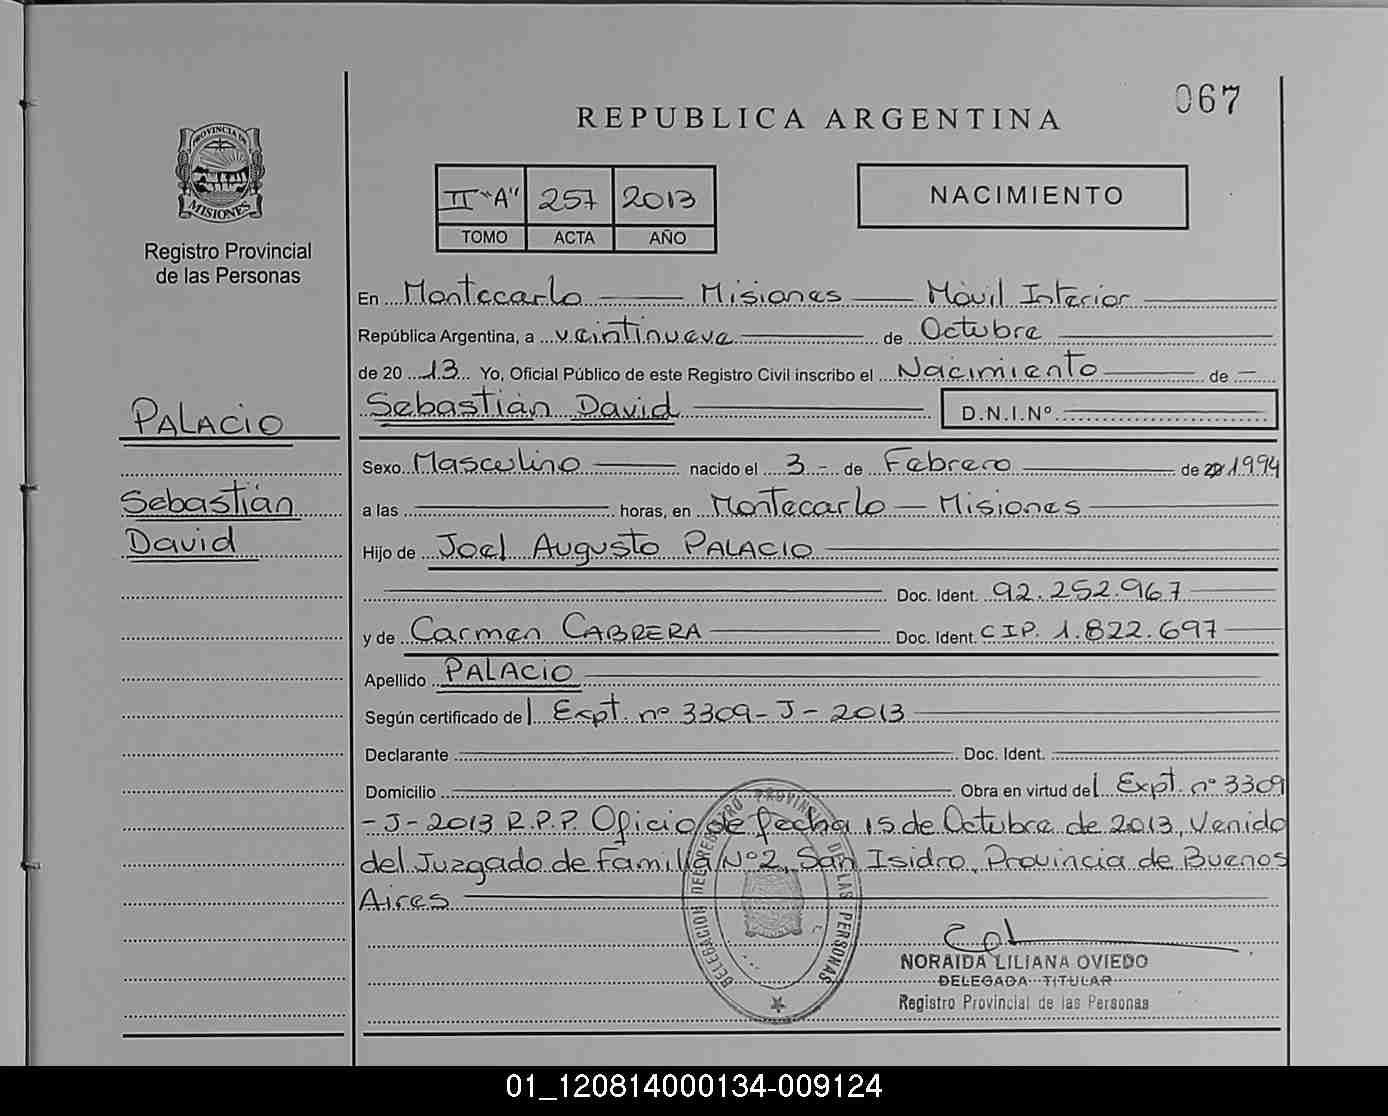 067
REPUBLICA ARGENTINA
PROVINCIA DE
MISIONES
Registro Provincial
de las Personas
II "A" 257 2013
TOMO ACTA AÑO
NACIMIENTO
En Montecarlo Misiones Móvil Interior
República Argentina, a veintinueve de Octubre
de 2013 Yo, Oficial Público de este Registro Civil inscribo el Nacimiento de
Sebastián David D.N.I.Nº
PALACIO
Sexo Masculino nacido el 3 - de Febrero de 1994
Sebastián
David
a las horas, en Montecarlo - Misiones
Hijo de Joel Augusto PALACIO
Doc. Ident. 92.252.967
y de Carmen CABRERA Doc. Ident. CIP. 1.822.697
Apellido PALACIO
Según certificado del Expt. nº 3309-J-2013
Declarante Doc. Ident.
Domicilio Obra en virtud del Expt. nº 3309
-J-2013 R.P.P. Oficio de fecha 15 de Octubre de 2013, Venido
del Juzgado de Familia Nº2, San Isidro, Provincia de Buenos
Aires
DELEGACION DEL REGISTRO PROVINCIAL DE LAS PERSONAS
NORAIDA LILIANA OVIEDO
DELEGADA TITULAR
Registro Provincial de las Personas
01_120814000134-009124